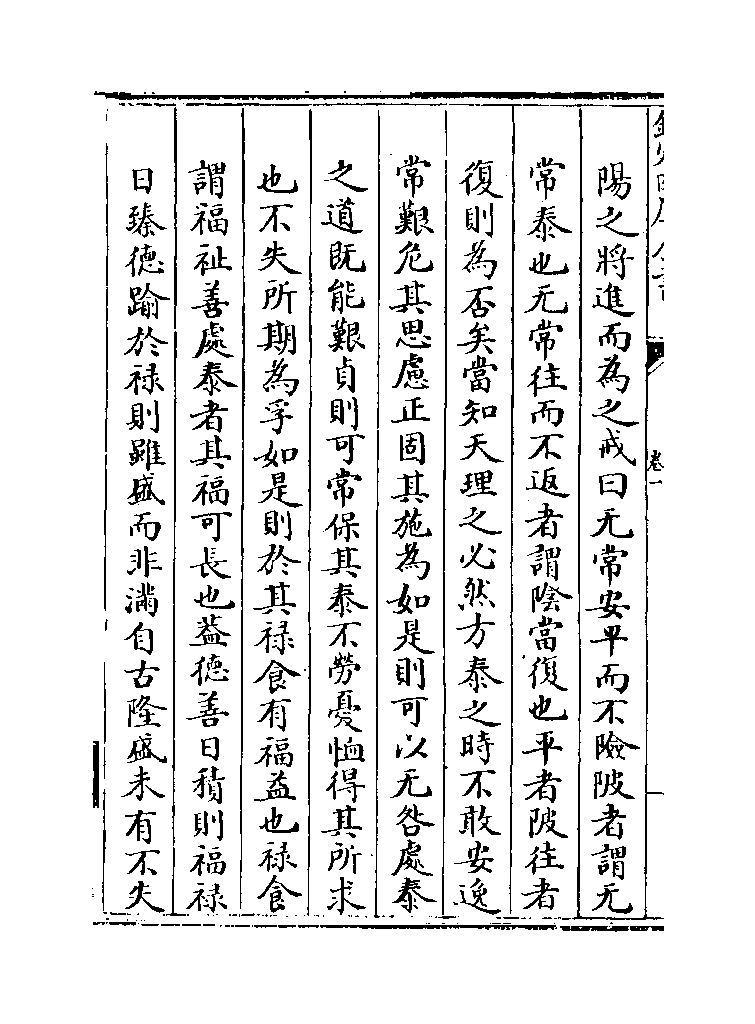 欽定四庫全書
卷一
陽之將進而為之戒曰无常安平而不險陂者謂无
常泰也无常往而不返者謂陰當復也平者陂往者
復則為否矣當知天理之必然方泰之時不敢安逸
常艱危其思慮正固其施為如是則可以无咎處泰
之道既能艱貞則可常保其泰不勞憂恤得其所求
也不失所期為孚如是則於其祿食有福益也祿食
謂福祉善處泰者其福可長也葢德善日積則福祿
日臻德踰於祿則雖盛而非滿自古隆盛未有不失